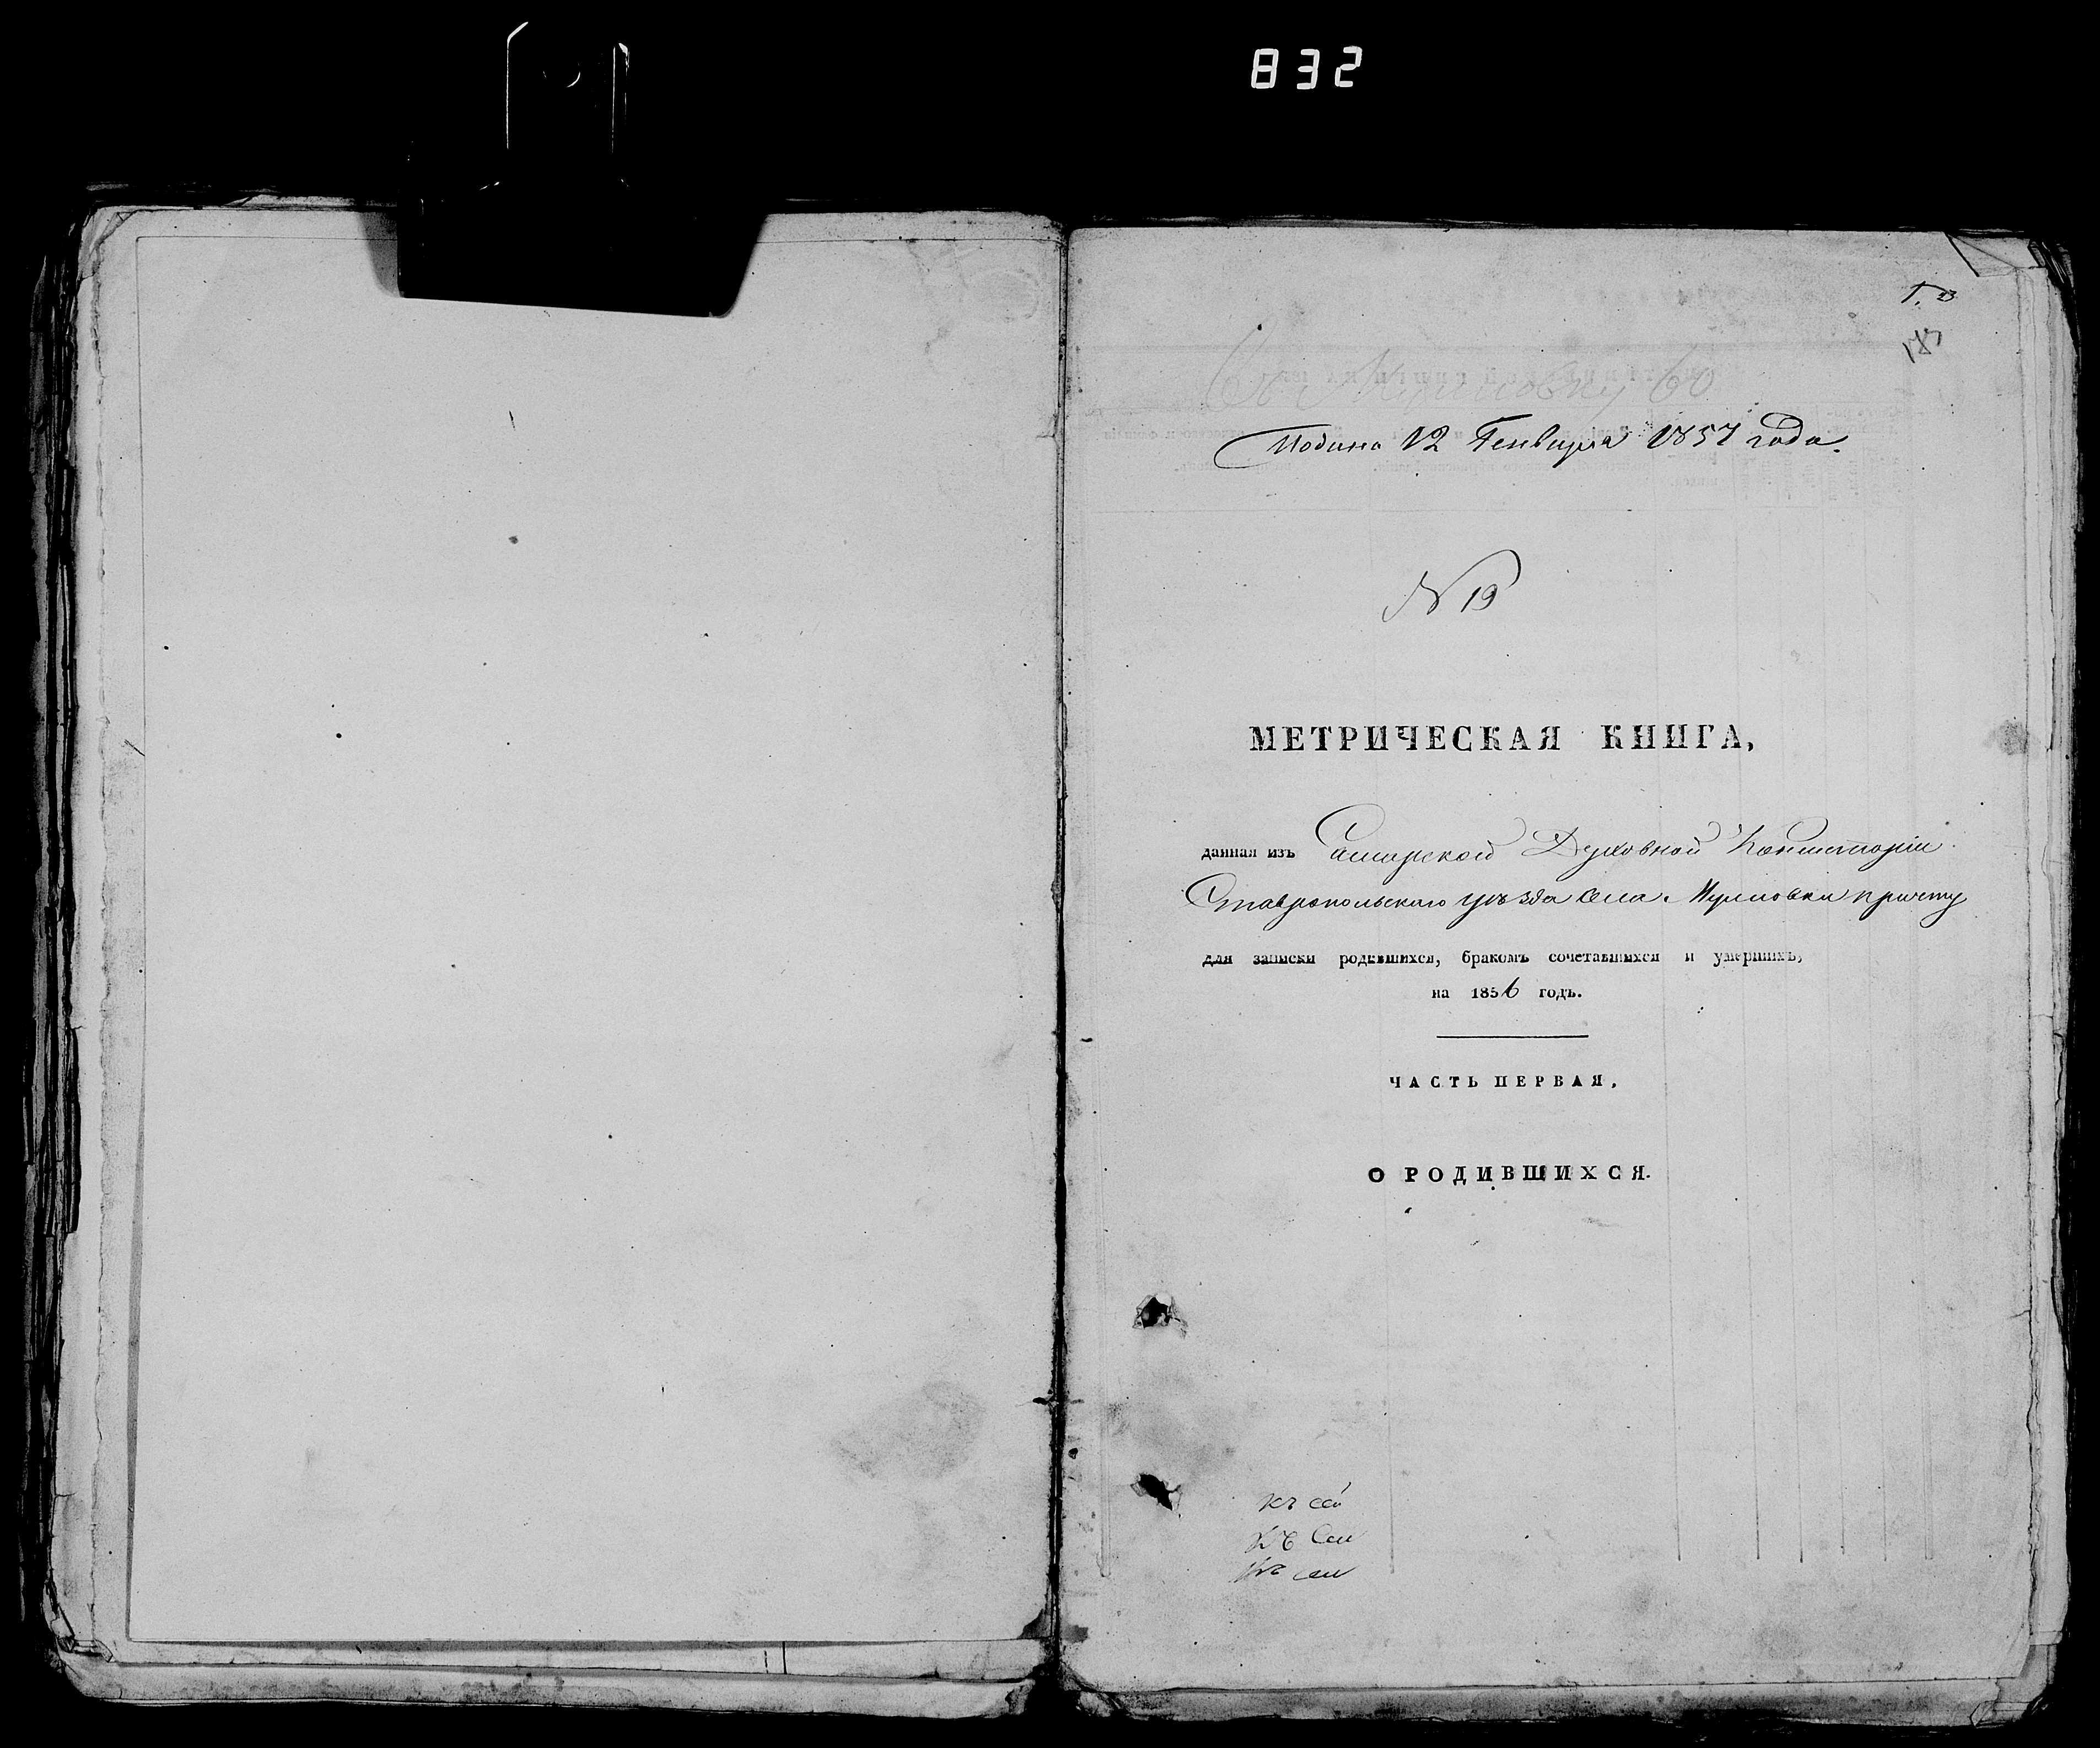 832
Подина 12 Генваря 1857 года.
N 19
МЕТРИЧЕСКАЯ КНИГА,
данная изъ Самарской Духовной Консисторіи
Ставропольскаго уѣзда села причту
для записки родившихся, бракомъ сочетавшихся и умершихъ,
на 1856 годъ.
ЧАСТЬ ПЕРВАЯ.
О РОДИВШИХСЯ.
къ сей
Къ Сей
Къ сей